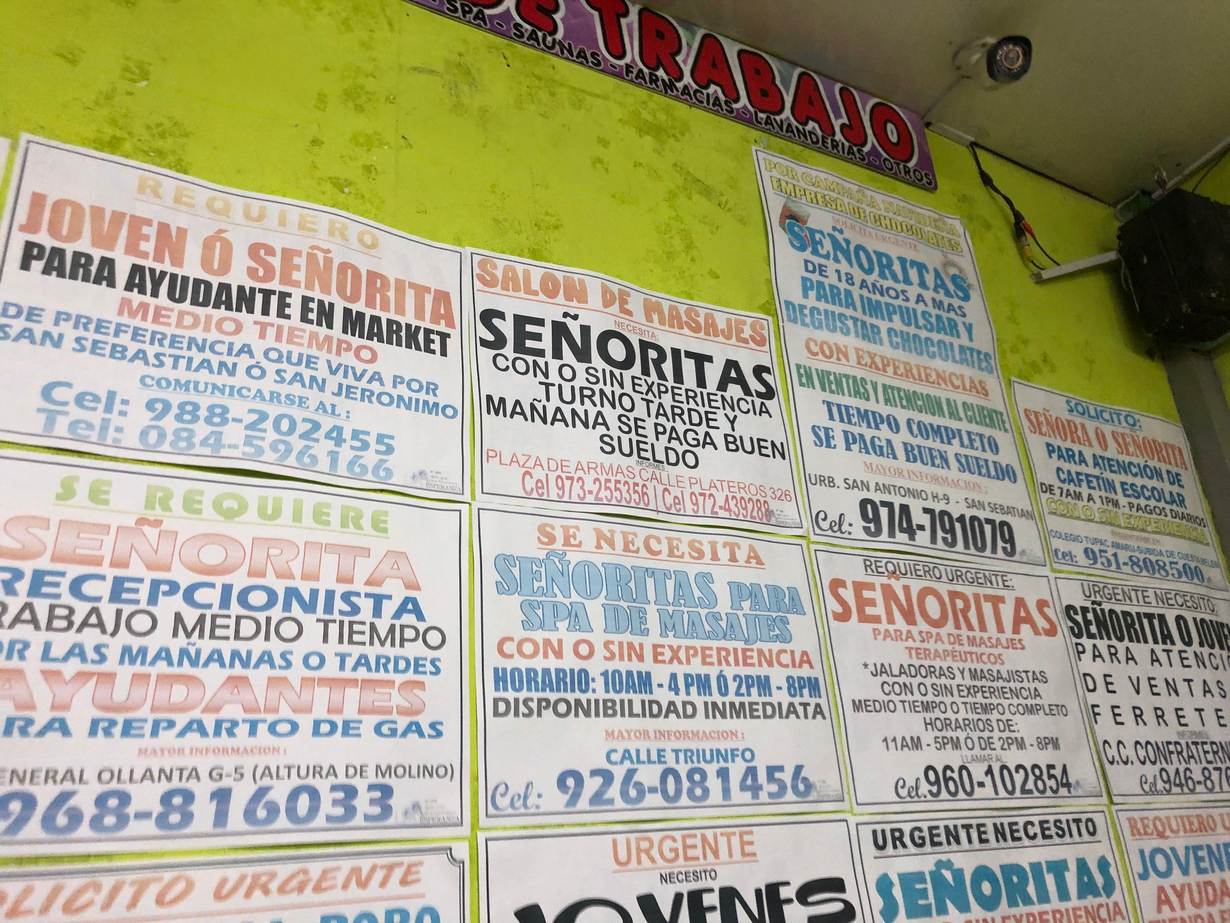 DE TRABAJO
SPA - SAUNAS - FARMACIAS - LAVANDERIAS - OTROS
REQUIERO
JOVEN Ó SEÑORITA
PARA AYUDANTE EN MARKET
MEDIO TIEMPO
DE PREFERENCIA QUE VIVA POR
SAN SEBASTIAN Ó SAN JERONIMO
COMUNICARSE AL :
Cel: 988-202455
Tel: 084-596166
SALON DE MASAJES
NECESITA
SEÑORITAS
CON O SIN EXPERIENCIA
TURNO TARDE Y
MAÑANA SE PAGA BUEN
SUELDO
INFORMES
PLAZA DE ARMAS CALLE PLATEROS 326
Cel 973-255356 | Cel 972-439288
POR CAMPAÑA NAVIDEÑA
EMPRESA DE CHOCOLATES
SOLICITA URGENTE
SEÑORITAS
DE 18 AÑOS A MAS
PARA IMPULSAR Y
DEGUSTAR CHOCOLATES
CON EXPERIENCIAS
EN VENTAS Y ATENCION AL CLIENTE
TIEMPO COMPLETO
SE PAGA BUEN SUELDO
MAYOR INFORMACION :
URB. SAN ANTONIO H-9 - SAN SEBATIAN
Cel: 974-791079
SOLICITO:
SEÑORA O SEÑORITA
PARA ATENCIÓN DE
CAFETÍN ESCOLAR
DE 7AM A 1PM - PAGOS DIARIOS
CON O SIN EXPERIENCIA
COLEGIO TUPAC AMARU-SUBIDA DE
Cel: 951-808500
SE REQUIERE
SEÑORITA
RECEPCIONISTA
RABAJO MEDIO TIEMPO
OR LAS MAÑANAS O TARDES
AYUDANTES
RA REPARTO DE GAS
MAYOR INFORMACION :
ENERAL OLLANTA G-5 (ALTURA DE MOLINO)
968-816033
SE NECESITA
SEÑORITAS PARA
SPA DE MASAJES
CON O SIN EXPERIENCIA
HORARIO: 10AM - 4 PM Ó 2PM - 8PM
DISPONIBILIDAD INMEDIATA
MAYOR INFORMACION :
CALLE TRIUNFO
Cel: 926-081456
REQUIERO URGENTE:
SEÑORITAS
PARA SPA DE MASAJES
TERAPÉUTICOS
*JALADORAS Y MASAJISTAS
CON O SIN EXPERIENCIA
MEDIO TIEMPO O TIEMPO COMPLETO
HORARIOS DE:
11AM - 5PM Ó DE 2PM - 8PM
LLAMAR AL
Cel. 960-102854
URGENTE NECESITO:
SEÑORITA O JOV
PARA ATENC
DE VENTAS
FERRETE
INFORMES
C.C. CONFRATER
Cel. 946-87
LICITO URGENTE
URGENTE
NECESITO
JOVENES
URGENTE NECESITO
SEÑORITAS
SIN EXPERIENCIA
REQUIERO
JOVENE
AYUDA